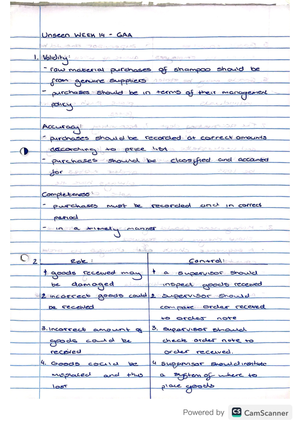 Unseen WEEK 14 - GAA
1. Validity:
- raw material purchases of shampoo should be
from genuine suppliers
- purchases should be in terms of their management
policy
Accuracy:
- purchases should be recorded at correct amounts
according to price list
- purchases should be classified and accounted
for
Completeness:
- purchases must be recorded and in correct
period
- in a timely manner
2. Risk: Control:
1 goods received may 1 a supervisor should
be damaged inspect goods received
2 incorrect goods could 2 supervisor should
be received compare order received
to order note
3. incorrect amount of 3. supervisor should
goods could be check order note to
received order received
4. Goods could be 4 supervisor should
misplaced and thus a system of where to
lost place goods
Powered by CS CamScanner